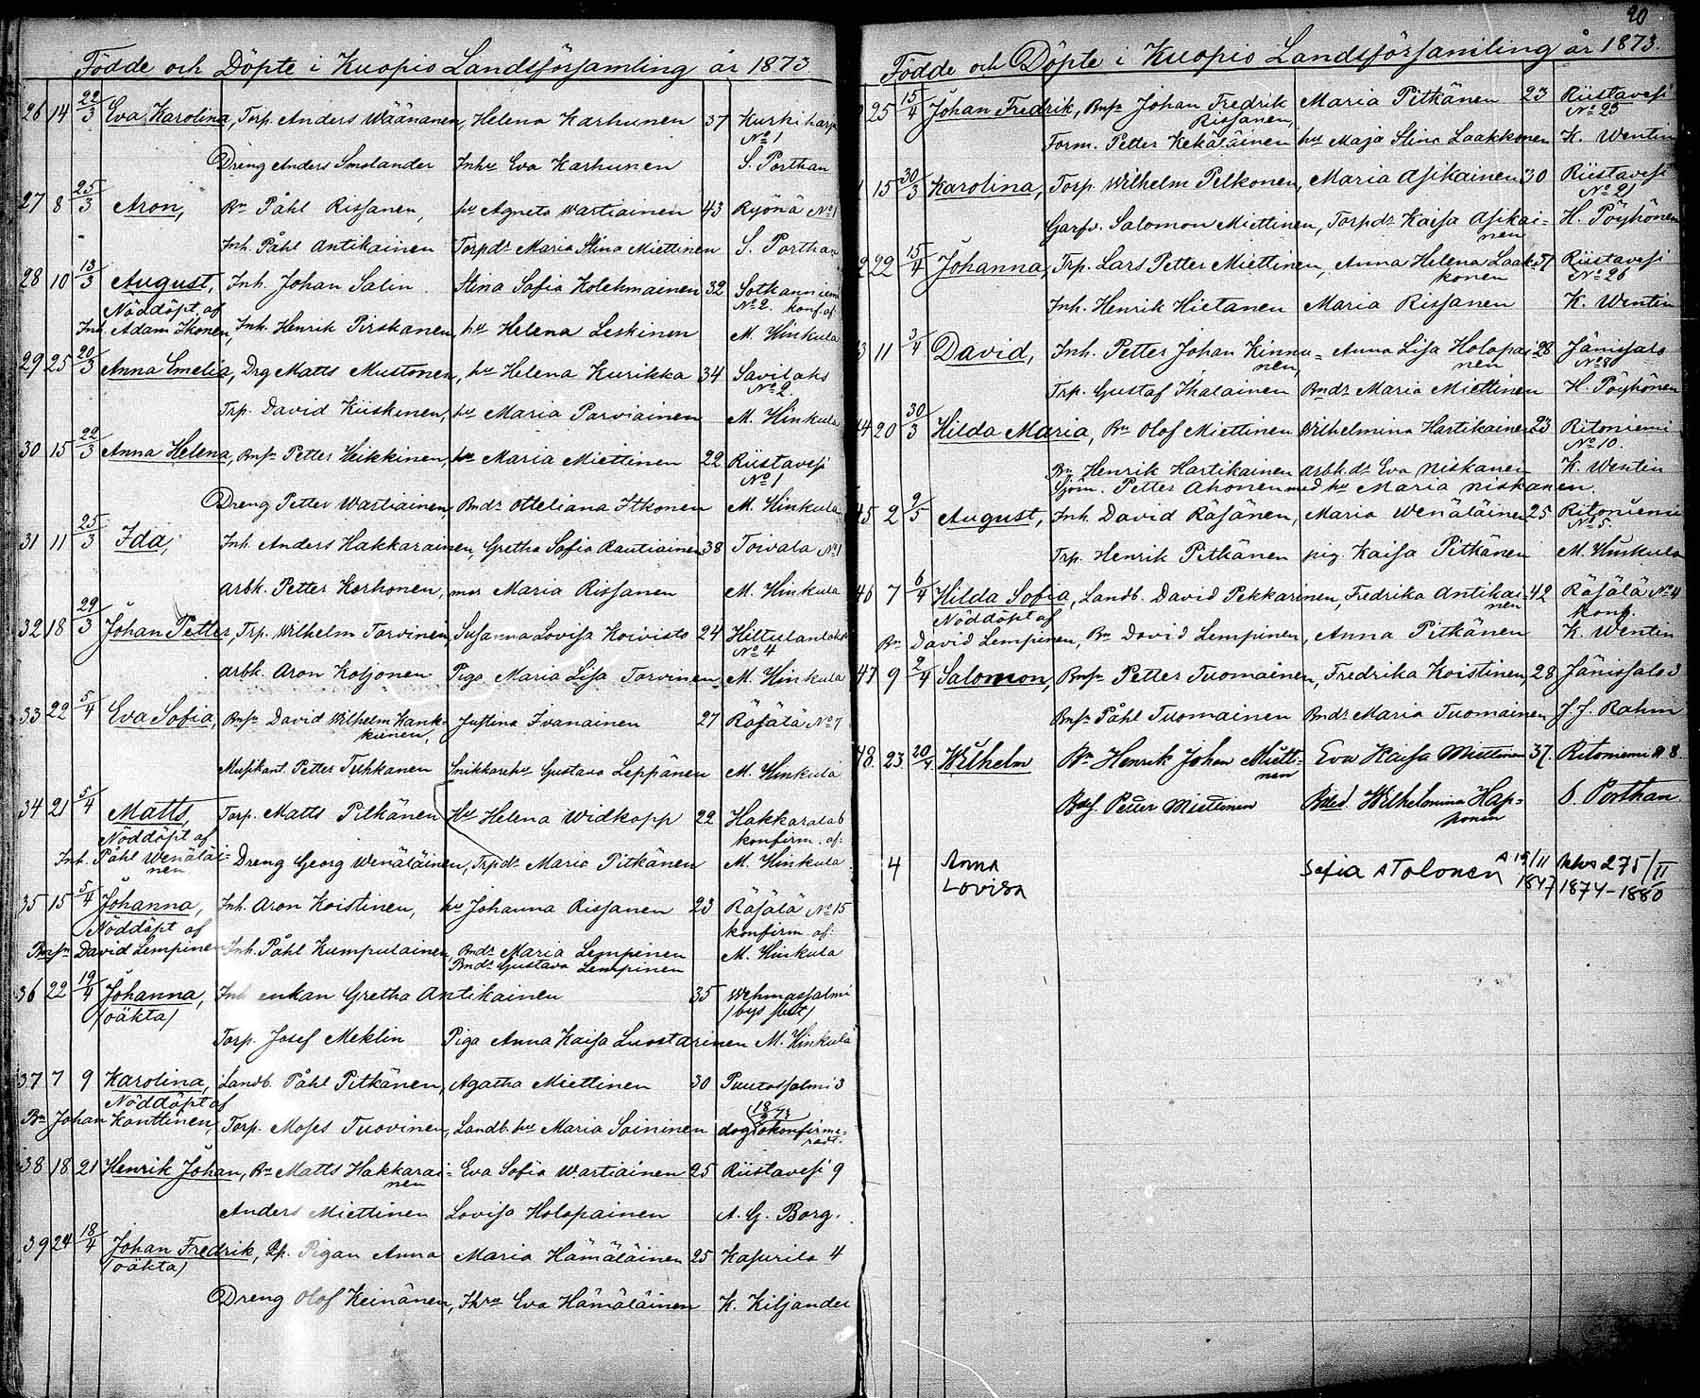 Födde och Döpte i Kuopio Landsförsamling år 1873.
26 14 22/3 Eva Karolina, Torp. Anders Wäänänen, Helena Karhunen 37 Kurkiharju
No 1
Dreng Anders Smolander Inhu Eva Karhunen S. Porthan
27 8 25/3 Aron, Bn Påhl Rissanen, hu Agneta Wartiainen 43 Ryönä No 1
Inh. Påhl Antikainen Torpdr Maria Stina Miettinen S. Porthan
28 10 13/3 August, Inh. Johan Salin Stina Sofia Kolehmainen 32 Sotkanniemi
Nöddöpt af No 2. konf. af
Inh. Adam Ikonen, Inh. Henrik Pirskanen, hu Helena Leskinen M. Hinkula
29 25 20/3 Anna Emelia, Drg Matts Mustonen, hu Helena Kurikka 34 Savilaks
No 2.
Trp. David Kiiskinen, hu Maria Parviainen M. Hinkula
30 15 22/3 Anna Helena, Bnsn Petter Heikkinen, hu Maria Miettinen 22 Riistavesi
No 1
Dreng Petter Wartiainen, Bndr Otteliana Itkonen M. Hinkula
31 11 25/3 Ida, Inh. Anders Hakkarainen, Gretha Sofia Rautiainen 38 Toivala No 1
Arbk. Petter Korhonen, mor Maria Rissanen M. Hinkula
32 18 29/3 Johan Petter, Trp. Wilhelm Torvinen, Susanna Lovisa Koivisto 24 Hiltulanlaks
No 4
Arbk. Aron Koljonen Piga Maria Lisa Torvinen M. Hinkula
33 22 5/4 Eva Sofia, Bnsn David Wilhelm Hank- Justina Ivanainen 27 Räsälä No 7
kunen,
Musikant Petter Tuhkanen Snikkarehu Gustava Leppänen M. Hinkula
34 21 5/4 Matts, Torp. Matts Pitkänen Hu Helena Widkopp 22 Hakkaralab
Nöddöpt af konfirm. af:
Inh. Påhl Wenäläi- Dreng Georg Wenäläinen, Trpdr Maria Pitkänen M. Hinkula
nen
35 15 5/4 Johanna, Inh. Aron Koistinen, hu Johanna Rissanen 23 Räsälä No 15
Nöddöpt af konfirm. af:
Bnsn David Lempinen Inh. Påhl Kumpulainen, Bndr Maria Lempinen M. Hinkula
Bndr Gustava Lempinen
36 22 19/4 Johanna, Inh enkan Gretha Antikainen 35 Wehmassalmi
(oäkta)
Torp. Josef Meklin Piga Anna Kaisa Luostarinen M. Hinkula
37 7 9 Karolina, Landb. Påhl Pitkänen, Agatha Miettinen 30 Puutossalmi 3
Nöddöpt af
Bn Johan Konttinen, Torp. Moses Tuovinen, Landb. hu Maria Soininen dog okonfirme-
radt.
38 18 21 Henrik Johan, Bn Matts Hakkarai- Eva Sofia Wartiainen 25 Riistavesi 9
nen
Anders Miettinen Lovisa Holopainen A. G. Borg.
39 24 18/4 Johan Fredrik, Pigan Anna Maria Hämäläinen 25 Kasurila 4
(oäkta)
Dreng Olof Keinänen, Eva Hämäläinen K. Kiljander
20
Födde och Döpte i Kuopio Landsförsamling år 1873.
25 15/4 Johan Fredrik, Bnsn Johan Fredrik Maria Pitkänen 23 Riistavesi
Rissanen, No 25
Form. Petter Kekäläinen hu Maja Stina Laakkonen K. Wentin
15 30/3 Karolina, Torp. Wilhelm Pelkonen, Maria Asikainen 30 Riistavesi
No 21
Garfv. Salomon Miettinen, Torpdr Kaisa Asikai- H. Pöyhönen
nen
22 15/4 Johanna, Trp. Lars Petter Miettinen, Anna Helena Laak- 37 Riistavesi
konen No 26
Inh. Henrik Hietanen Maria Rissanen K. Wentin
3 11 3/4 David, Inh. Petter Johan Kinnu- Anna Lisa Holopai- 28 Jänissalo
nen, nen No 8
Trp. Gustaf Ihalainen Bndr Maria Miettinen H. Pöyhönen
44 20 30/3 Hilda Maria, Bn Olof Miettinen Wilhelmina Hartikainen 23 Ritoniemi
No 10.
Bn Henrik Hartikainen arbk. dr Eva Niskanen K. Wentin
Sjöm. Petter Ahonen med hu Maria Niskanen.
45 2 9/5 August, Inh. David Räsänen, Maria Wenäläinen 25 Ritoniemi
No 5.
Trp. Henrik Pitkänen pig. Kaisa Pitkänen M. Hinkula
46 7 6/4 Hilda Sofia, Landb. David Pekkarinen, Fredrika Antikai- 42 Räsälä No 4
Nöddöpt af nen konf.
Bn David Lempinen, Bn David Lempinen, Anna Pitkänen K. Wentin
47 9 2/4 Salomon, Bnsn Petter Tuomainen, Fredrika Koistinen, 28 Jänissalo 3
Bnsn Påhl Tuomainen Bndr Maria Tuomainen J. J. Rahm
48. 23 20/4 Wilhelm Bn Henrik Johan Miett- Eva Kaisa Miettinen 37. Ritoniemi N 8.
nen
Petter Miettinen Wilhelmina Hap- S. Porthan
ponen
4 Anna Sofia Atolonen 19/11 khs 275/II
Lovisa 1847 1874-1880